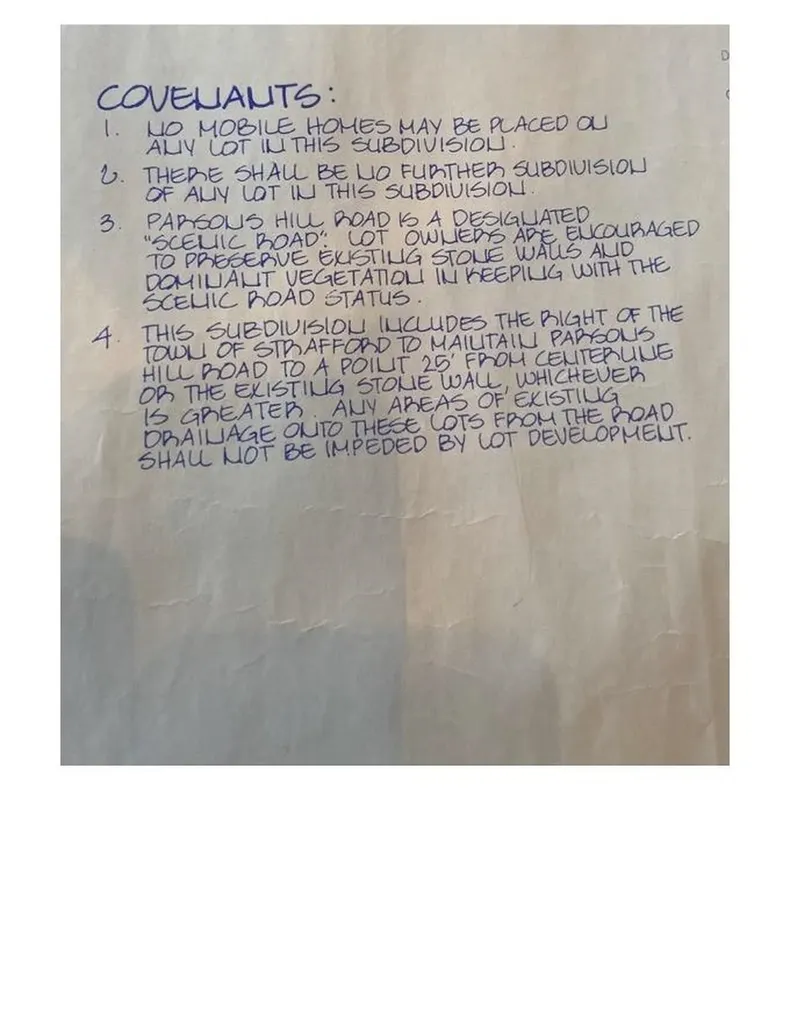 COVENANTS:
1. NO MOBILE HOMES MAY BE PLACED ON
ANY LOT IN THIS SUBDIVISION.
2. THERE SHALL BE NO FURTHER SUBDIVISION
OF ANY LOT IN THIS SUBDIVISION.
3. PARSONS HILL ROAD IS A DESIGNATED
"SCENIC ROAD". LOT OWNERS ARE ENCOURAGED
TO PRESERVE EXISTING STONE WALLS AND
DOMINANT VEGETATION IN KEEPING WITH THE
SCENIC ROAD STATUS.
4. THIS SUBDIVISION INCLUDES THE RIGHT OF THE
TOWN OF STRAFFORD TO MAINTAIN PARSONS
HILL ROAD TO A POINT 25' FROM CENTERLINE
OR THE EXISTING STONE WALL, WHICHEVER
IS GREATER. ANY AREAS OF EXISTING
DRAINAGE ONTO THESE LOTS FROM THE ROAD
SHALL NOT BE IMPEDED BY LOT DEVELOPMENT.